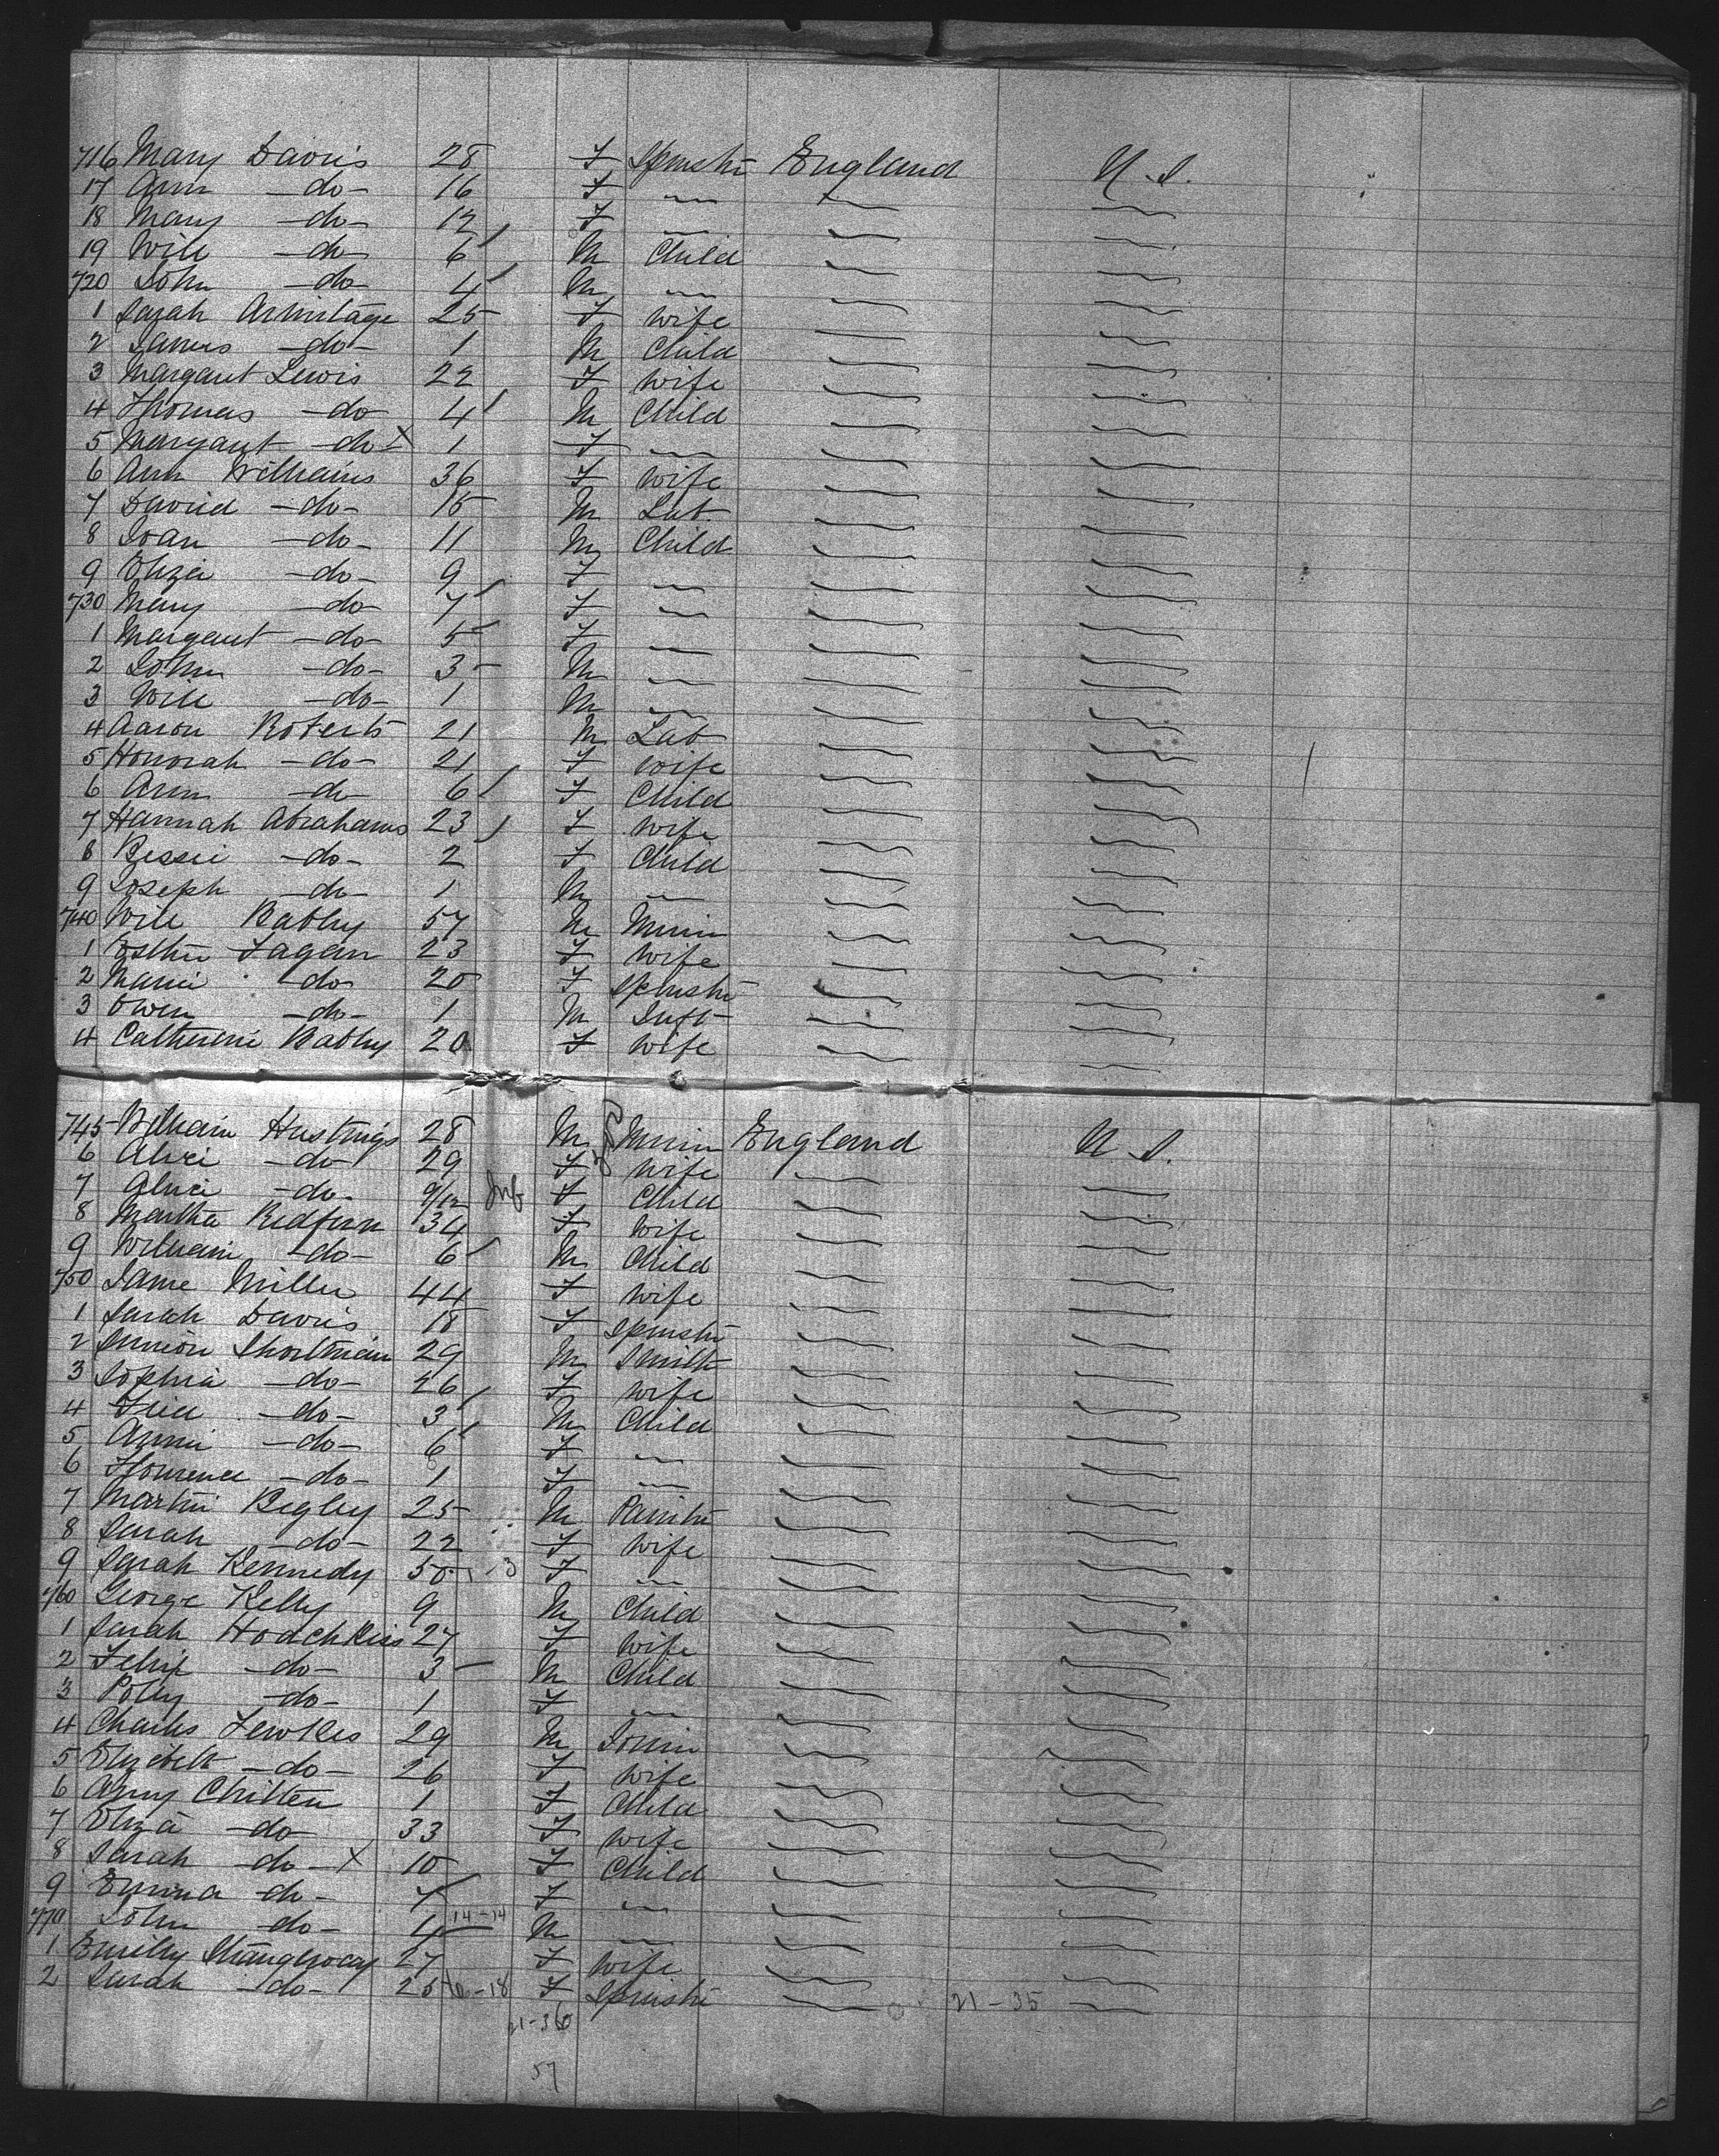 716 Mary Davis 28 F Spinstr England U.S.
17 Ann -do- 16 F
18 Mary -do- 12 F
19 Will -do- 6 M Child
720 John -do- 4 M
1 Sarah Armitage 25 F Wife
2 James -do- 1 M Child
3 Margaret Lewis 22 F Wife
4 Thomas -do- 4 M Child
5 Margaret -do- X 1 F
6 Ann Williams 36 F Wife
7 David -do- 15 M Lab
8 Ioan -do- 11 M Child
9 Eliza -do- 9 F
730 Mary -do- 7 F
1 Margaret -do- 5 F
2 John -do- 3 M
3 Will -do- 1 M
4 Aaron Roberts 21 M Lab
5 Honorah -do- 21 F Wife
6 Ann -do- 6 F Child
7 Hannah Abrahams 23 F Wife
8 Bessie -do- 2 F Child
9 Joseph -do- 1 M
740 Will 57 M Miner
1 Esther Fagan 23 F Wife
2 -do- 20 F Spinstr
3 Owen -do- 1 M Inft
4 Catherine 20 F Wife
745 William Hustings 28 M Miner England U.S.
6 Alice -do- 29 F Wife
7 Alice -do- 9/12 Inf F Child
8 Martha Redfern 34 F Wife
9 William -do- 6 M Child
750 Jane Miller 44 F Wife
1 Sarah Davis 18 F Spinstr
2 Simeon Shortman 29 M Smith
3 Sophia -do- 26 F Wife
4 -do- 3 M Child
5 Annie -do- 6 F
6 Florence -do- 1 F
7 Martin Begley 25 M Painter
8 Sarah -do- 22 F Wife
9 Sarah Kennedy 50 F
760 George Kelly 9 M Child
1 Sarah Hodchkiss 27 F Wife
2 -do- 3 M Child
3 Polly -do- 1 F
4 Charles Fewkes 29 M Joiner
5 Elizabeth -do- 26 F Wife
6 Amy Chilten 1 F Child
7 Eliza -do- 33 F Wife
8 Sarah -do- X 10 F Child
9 Emma -do- 7 F
770 John -do- 4 14-14 M
1 Emilly 27 F Wife
2 Sarah -do- 25 -18 F Spinstr 21-35
21-36
57